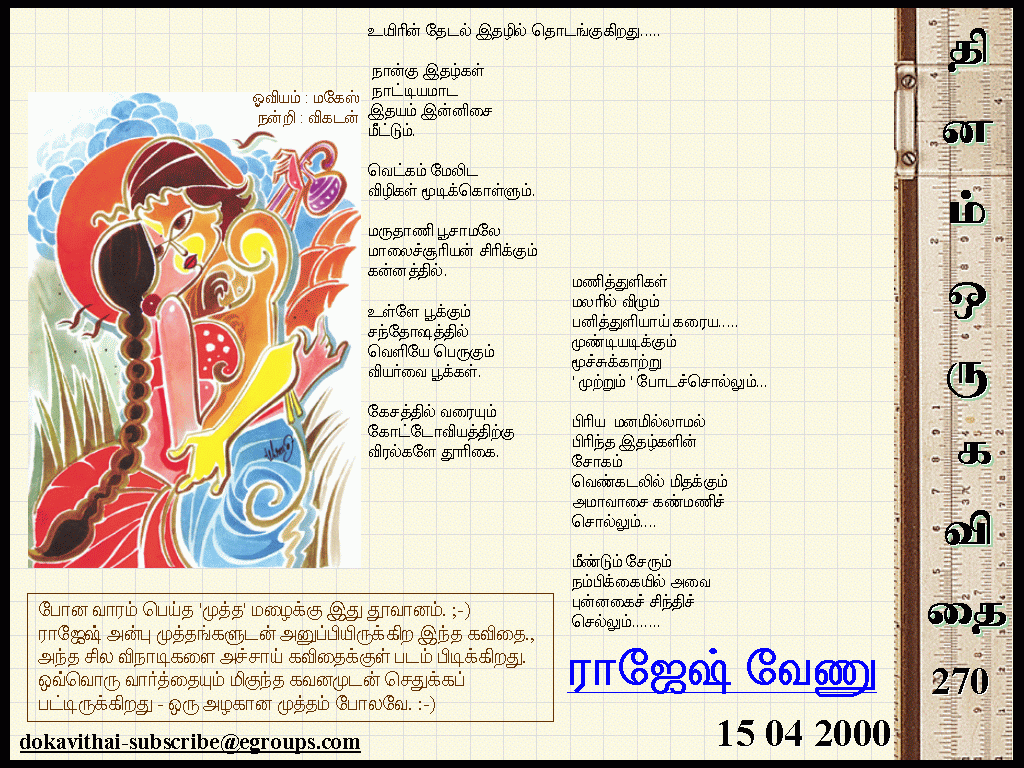 உயிரின் தேடல் இதழில் தொடங்குகிறது.....
நான்கு இதழ்கள்
நாட்டியமாட
இதயம் இன்னிசை
மீட்டும்.
வெட்கம் மேலிட
விழிகள் மூடிக்கொள்ளும்.
மருதாணி பூசாமலே
மாலைச்சூரியன் சிரிக்கும்
கன்னத்தில்.
உள்ளே பூக்கும்
சந்தோஷத்தில்
வெளியே பெருகும்
வியர்வை பூக்கள்.
கேசத்தில் வரையும்
கோட்டோவியத்திற்கு
விரல்களே தூரிகை.
மணித்துளிகள்
மலரில் விழும்
பனித்துளியாய் கரைய.....
முண்டியடிக்கும்
மூச்சுக்காற்று
' முற்றும் ' போடச்சொல்லும்...
பிரிய மனமில்லாமல்
பிரிந்த இதழ்களின்
சோகம்
வெண்கடலில் மிதக்கும்
அமாவாசை கண்மணிச்
சொல்லும்....
மீண்டும் சேரும்
நம்பிக்கையில் அவை
புன்னகைச் சிந்திச்
செல்லும்.......
ராஜேஷ் வேணு
15 04 2000
ஓவியம் : மகேஸ்
நன்றி : விகடன்
போன வாரம் பெய்த 'முத்த' மழைக்கு இது தூவானம். ;-)
ராஜேஷ் அன்பு முத்தங்களுடன் அனுப்பியிருக்கிற இந்த கவிதை.,
அந்த சில விநாடிகளை அச்சாய் கவிதைக்குள் படம் பிடிக்கிறது.
ஒவ்வொரு வார்த்தையும் மிகுந்த கவனமுடன் செதுக்கப்
பட்டிருக்கிறது - ஒரு அழகான முத்தம் போலவே. :-)
dokavithai-subscribe@egroups.com
தி
ன
ம்
ஒ
ரு
க
வி
தை
270